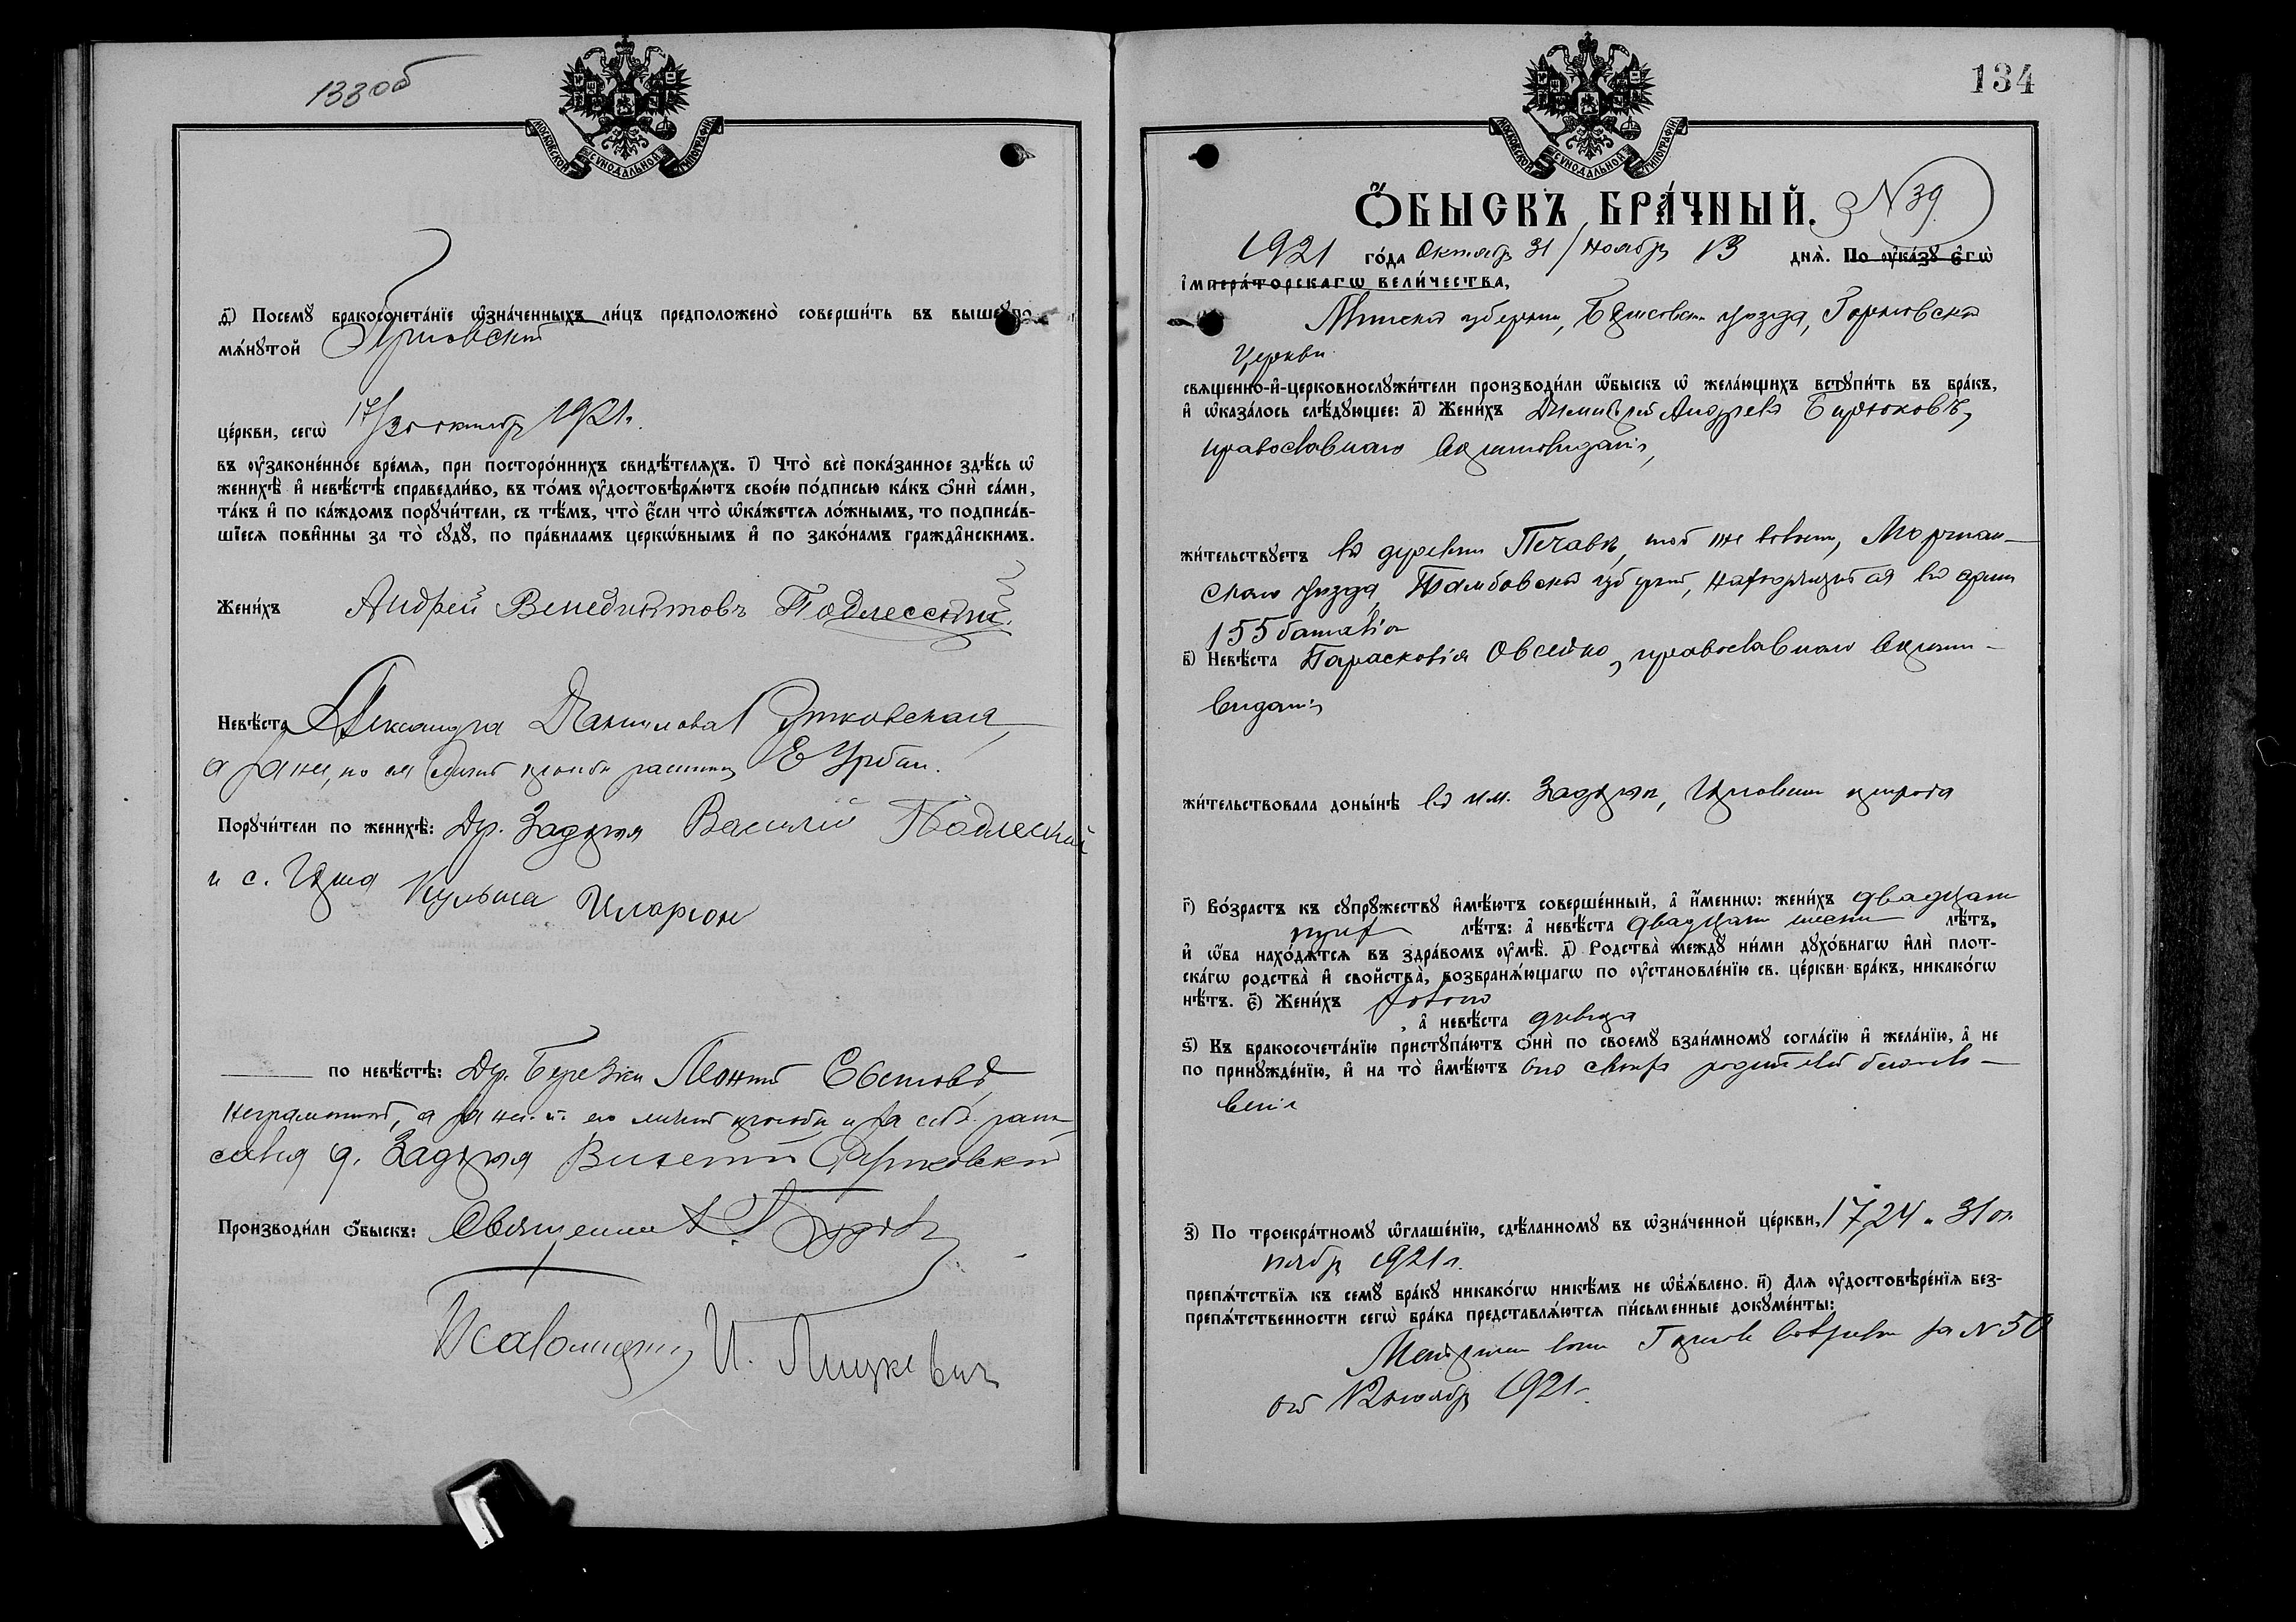 133об
МОСКОВСКОЙ СѴНОДАЛЬНОЙ ТИПОГРАФІИ
д҃) Посемꙋ̀ бракосочета́нїе ѡ҆зна́ченныхъ ли́цъ предположено̀ соверши́ть въ вышеꙋпо-
мѧ́нꙋтой
це́ркви, сегѡ̀ 17/30 октябр 1921 г.
въ ᲂу҆законе́нное вре́мѧ, при посторо́ннихъ свидѣ́телѧхъ. і҃) Что̀ всѐ пока́занное здѣ́сь ѡ҆
женихѣ̀ и҆ невѣ́стѣ справедли́во, въ то́мъ ᲂу҆достовѣрѧ́ютъ свое́ю по́дписью ка́къ ѻ҆нѝ са́ми,
та́къ и҆ по ка́ждомъ порꙋчи́тели, съ тѣ́мъ, что̀ є҆́сли что̀ ѡ҆ка́жетсѧ ло́жнымъ, то подписа́в-
шїесѧ пови́нны за то̀ сꙋдꙋ̀, по пра́виламъ церко́внымъ и҆ по зако́намъ гражда̂нскимъ.
Жени́хъ Андрей Венедиктовъ Подлесский
Невѣ́ста Александра Данилова Рутковская,
а за нея, по ея личной просьбе Е Урбан.
Порꙋчи́тели по женихѣ̀: Др. Василий Подлеский
и с. Кулеша Иларион
по невѣ́стѣ: Др. Березки Леонтий
неграмотный, а за него по его личной просьбе и за себя распи
сался д. Викентий
Производи́ли ѻ҆́быскъ: Священник
Псаломщик И. Лицкевич
134
МОСКОВСКОЙ СѴНОДАЛЬНОЙ ТИПОГРАФІИ
Ѻ҆́БЫСКЪ БРА́ЧНЫЙ. N 39
1921 го́да Октябр 31 / Ноябр 13 днѧ̀. По ᲂу҆ка́зꙋ є҆гѡ̀
і҆мпера́торскагѡ вели́чества,
Минской губернии, Борисовск уезда,
Церкви
свѧщенно-и҆-церковнослꙋжи́тели производи́ли ѡ҆́быскъ ѡ҆ жела́ющихъ встꙋпи́ть въ бра́къ,
и҆ ѡ҆каза́лось слѣ́дꙋющее: а҃) Жени́хъ Димитрий Андреев Бирюковъ,
православного вероисповедания,
жи́тельствꙋетъ в деревни той же волости, Моршан-
ского уезда, Тамбовской губерний, находящийся в армии
155 баталіон
в҃) Невѣ́ста Парасковія Овсейко, православного вероиспо-
ведания
жи́тельствовала доны́нѣ в им. прихода
г҃) Во́зрастъ къ сꙋпрꙋ́жествꙋ и҆мѣ́ютъ соверше́нный, а҆ и҆́меннѡ: жени́хъ двадцати
лѣ́тъ: а҆ невѣ́ста двадцати шести лѣ́тъ,
и҆ ѡ҆́ба нахо́дѧтсѧ въ здра́вомъ ᲂу҆мѣ̀. д҃) Родства̀ междꙋ̀ ни́ми дꙋхо́внагѡ и҆лѝ плот-
ска́гѡ родства̀ и҆ свойства̀, возбранѧ́ющагѡ по ᲂу҆становле́нїю св. це́ркви бра́къ, никако́гѡ
нѣ́тъ. є҃) Жени́хъ холост
, а҆ невѣ́ста девица
ѕ҃) Къ бракосочета́нїю пристꙋпа́ютъ ѻ҆нѝ по своемꙋ̀ взаи́мномꙋ согла́сїю и҆ жела́нїю, а҆ не
по принꙋжде́нїю, и҆ на то̀ и҆мѣ́ютъ от своих родителей благосло-
вения
з҃) По троекра́тномꙋ ѡ҆глаше́нїю, сдѣ́ланномꙋ въ ѡ҆зна́ченной це́ркви, 17, 24 и 31 ок
тябр 1921 г.
препѧ́тствїѧ къ семꙋ̀ бра́кꙋ никако́гѡ никѣ́мъ не ѡ҆б̾ѧ́влено. и҃) Длѧ ᲂу҆достовѣре́нїѧ без-
препѧ́тственности сегѡ̀ бра́ка представлѧ́ютсѧ пи́сьменные докꙋме́нты:
за N 50
от 12 ноябр 1921 г.